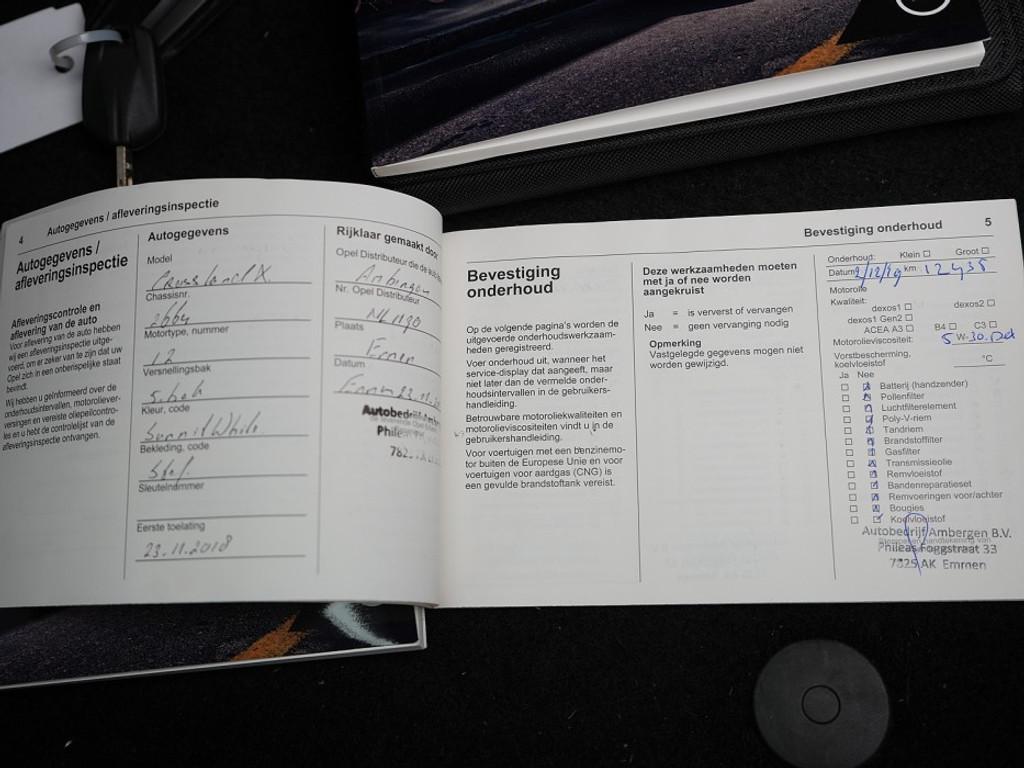 4 Autogegevens / afleveringsinspectie
Autogegevens /
afleveringsinspectie
Afleveringscontrole en
aflevering van de auto
Voor aflevering van de auto hebben
wij een afleveringsinspectie uitge-
voerd, om er zeker van te zijn dat uw
Opel zich in een onberispelijke staat
bevindt.
Wij hebben u geïnformeerd over de
onderhoudsintervallen, motoroliever-
versingen en vereiste oliepeilcontro-
les en u hebt de controlelijst van de
afleveringsinspectie ontvangen.
Autogegevens
Model
Crossland X.
Chassisnr.
Motortype, nummer
1.2
Versnellingsbak
5.bak
Kleur, code
Summit White
Bekleding, code
Stof.
Sleutelnummer
Eerste toelating
23.11.2018
Rijklaar gemaakt door
Opel Distributeur die de auto
Ambergen
Nr. Opel Distributeur
Plaats
Emmen
Datum
Emmen 23.11.
Autobedrijf
Phileas
Bevestiging onderhoud 5
Bevestiging
onderhoud
Op de volgende pagina's worden de
uitgevoerde onderhoudswerkzaam-
heden geregistreerd.
Voer onderhoud uit, wanneer het
service-display dat aangeeft, maar
niet later dan de vermelde onder-
houdsintervallen in de gebruikers-
handleiding.
Betrouwbare motoroliekwaliteiten en
motorolieviscositeiten vindt u in de
gebruikershandleiding.
Voor voertuigen met een benzinemo-
tor buiten de Europese Unie en voor
voertuigen voor aardgas (CNG) is
een gevulde brandstoftank vereist.
Deze werkzaamheden moeten
met ja of nee worden
aangekruist
Ja = is ververst of vervangen
Nee = geen vervanging nodig
Opmerking
Vastgelegde gegevens mogen niet
worden gewijzigd.
Onderhoud: Klein Groot
Datum 2/12/19 km 12435
Motorolie
Kwaliteit:
dexos1 dexos2
dexos1 Gen2
ACEA A3 B4 C3
Motorolieviscositeit: 5 W-30.
Vorstbescherming,
koelvloeistof °C
Ja Nee
Batterij (handzender)
Pollenfilter
Luchtfilterelement
Poly-V-riem
Tandriem
Brandstoffilter
Gasfilter
Transmissieolie
Remvloeistof
Bandenreparatieset
Remvoeringen voor/achter
Bougies
Koelvloeistof
Autobedrijf Ambergen B.V.
Phileas Foggstraat 33
7825 AK Emmen